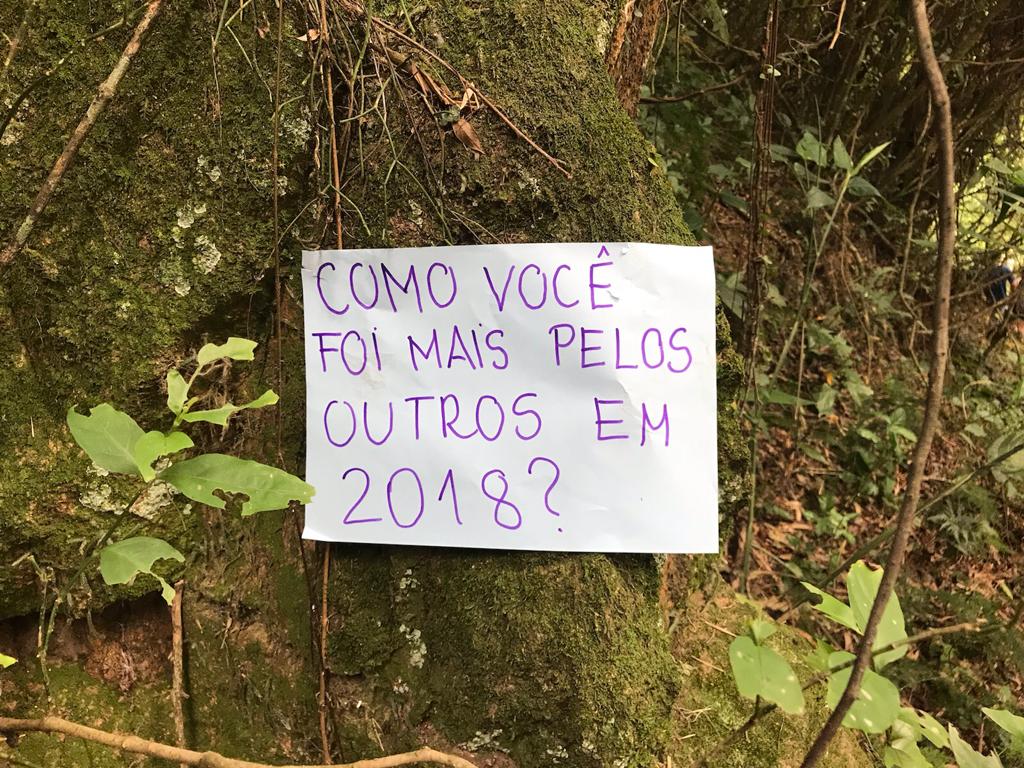 COMO VOCÊ
FOI MAIS PELOS
OUTROS EM
2018?